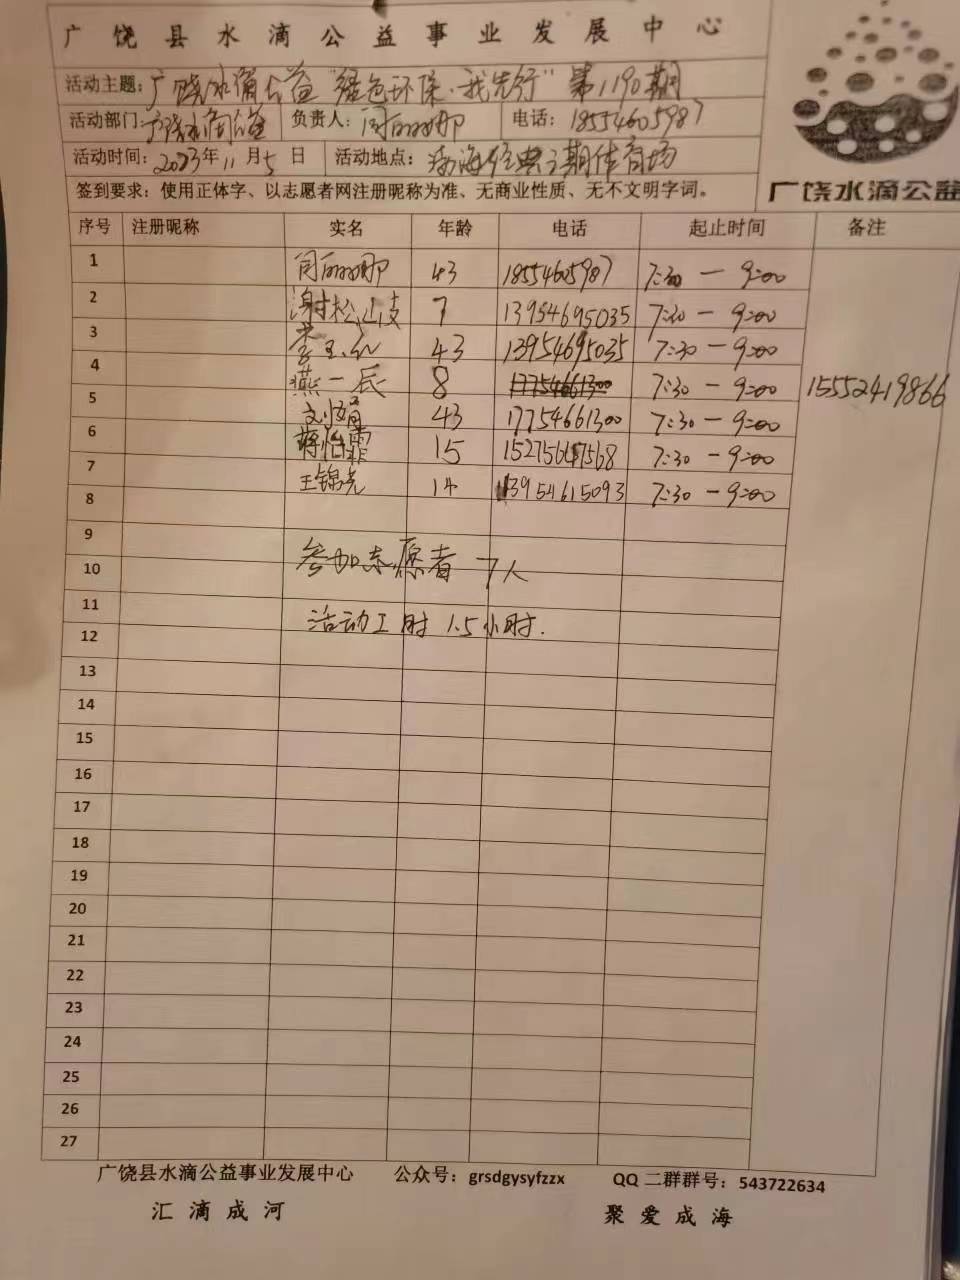 广饶县水滴公益事业发展中心
活动主题：广饶水滴公益"绿色环保·我先行"第1190期
活动部门：广饶水滴公益 负责人：闫丽娜 电话：18554605987
活动时间：2023年11月5日 活动地点：渤海经典三期体育场
签到要求：使用正体字、以志愿者网注册昵称为准、无商业性质、无不文明字词。
广饶水滴公益
序号 注册昵称 实名 年龄 电话 起止时间 备注
1 闫丽娜 43 18554605987 7:30—9:00
2 谢松 7 13954695035 7:30—9:00
3 李玉红 43 13954695035 7:30—9:00
4 燕一辰 8 17754661300 7:30—9:00 15552419866
5 43 17754661300 7:30—9:00
6 蒋怡霏 15 7:30—9:00
7 王锦尧 14 13954615093 7:30—9:00
8
9
参加志愿者7人
10
11
活动工时1.5小时.
12
13
14
15
16
17
18
19
20
21
22
23
24
25
26
27
广饶县水滴公益事业发展中心 公众号：grsdgysyfzzx QQ二群群号：543722634
汇滴成河 聚爱成海